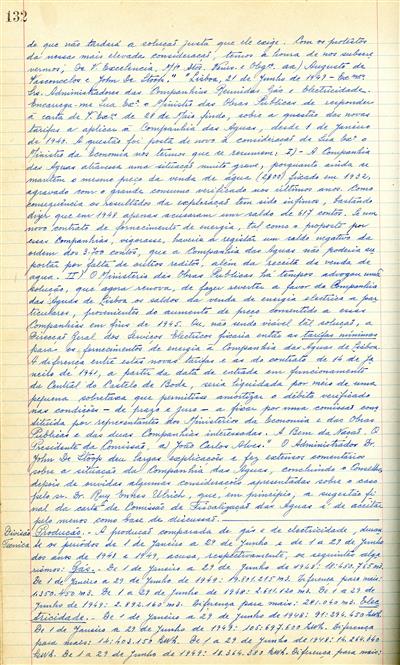 132
de que não tardará a solução justa que ele exige. Com os protestos
da nossa mais elevada consideração, temos a honra de nos subscre
vermos, De V. Excelência, Mto. Atos. Venrs. e Obgos. aa) Augusto de
Vasconcelos e John De Stoop." "Lisboa, 21 de Junho de 1949 - Exmos.
Srs. Administradores das Companhias Reunidas Gás e Electricidade.
Encarrega-me Sua Exa. o Ministro das Obras Públicas de responder
à carta de V. Exas. de 28 de Maio findo, sobre a questão das novas
tarifas a aplicar à Companhia das Águas, desde 1 de Janeiro
de 1949. A questão foi posta de novo à consideração de Sua Exa. o
Ministro da Economia nos termos que se resumem: I) - A Companhia
das Águas atravessa uma situação muito grave, porquanto ainda se
mantém o mesmo preço da venda de água (2$00) fixado em 1932,
agravado com o grande consumo verificado nos últimos anos. Como
consequência os resultados da exploração têm sido ínfimos, bastando
dizer que em 1948 apenas acusaram um saldo de 617 contos. Se um
novo contrato de fornecimento de energia, tal como o proposto por
essas Companhias, vigorasse, haveria a registar um saldo negativo da
ordem dos 3.700 contos, que a Companhia das Águas não poderia su
portar por falta de outros réditos, além da receita da venda de
água. II) O Ministério das Obras Públicas há tempos advogou uma
solução, que agora renova, de fazer reverter a favor da Companhia
das Águas de Lisboa os saldos da venda de energia eléctrica a par
ticulares, provenientes do aumento de preço consentido a essas
Companhias em fins de 1945. Ou, não sendo viável tal solução, a
Direcção Geral dos Serviços Eléctricos fixaria então as tarifas mínimas
para os fornecimentos de energia à Companhia das Águas de Lisboa.
A diferença entre estas novas tarifas e as do contrato de 14 de Ja
neiro de 1941, a partir da data de entrada em funcionamento
da Central do Castelo do Bode, seria liquidada por meio de uma
pequena sobretaxa que permitisse amortizar o débito verificado
nas condições - de prazo e juro - a fixar por uma comissão cons
tituída por representantes dos Ministérios da Economia e das Obras
Públicas e das duas Companhias interessadas. A Bem da Nação. O
Presidente da Comissão, a) João Carlos Alves." O Administrador Sr.
John De Stoop deu largas explicações e fez extensos comentários
sobre a situação da Companhia das Águas, concluindo o Conselho,
depois de ouvidas algumas considerações apresentadas sobre o caso
pelo sr. Dr. Ruy Ennes Ulrich, que, em princípio, a sugestão fi
nal da carta da Comissão de Fiscalização das Águas é de aceitar,
pelo menos como base de discussão.
Divisão Técnica
Produção. - A produção comparada de gás e de electricidade, duran
te os períodos de 1 de Janeiro a 29 de Junho e de 1 a 29 de Junho
dos anos de 1948 e 1949, acusa, respectivamente, os seguintes alga
rismos: Gás. - De 1 de Janeiro a 29 de Junho de 1948: 18.450.765 m3.
De 1 de Janeiro a 29 de Junho de 1949: 19.801.215 m3. Diferença para mais:
1.350.450 m3. De 1 a 29 de Junho de 1948: 2.611.120 m3. De 1 a 29 de
Junho de 1949: 2.892.160 m3. Diferença para mais: 281.040 m3. Elec
tricidade. - De 1 de Janeiro a 29 de Junho de 1948: 91.294.450 kWh.
De 1 de Janeiro a 29 de Junho de 1949: 105.697.609 kWh. Diferença
para mais: 14.403.159 kWh. De 1 a 29 de Junho de 1948: 16.264.640
kWh. De 1 a 29 de Junho de 1949: 18.364.380 kWh. Diferença para mais: